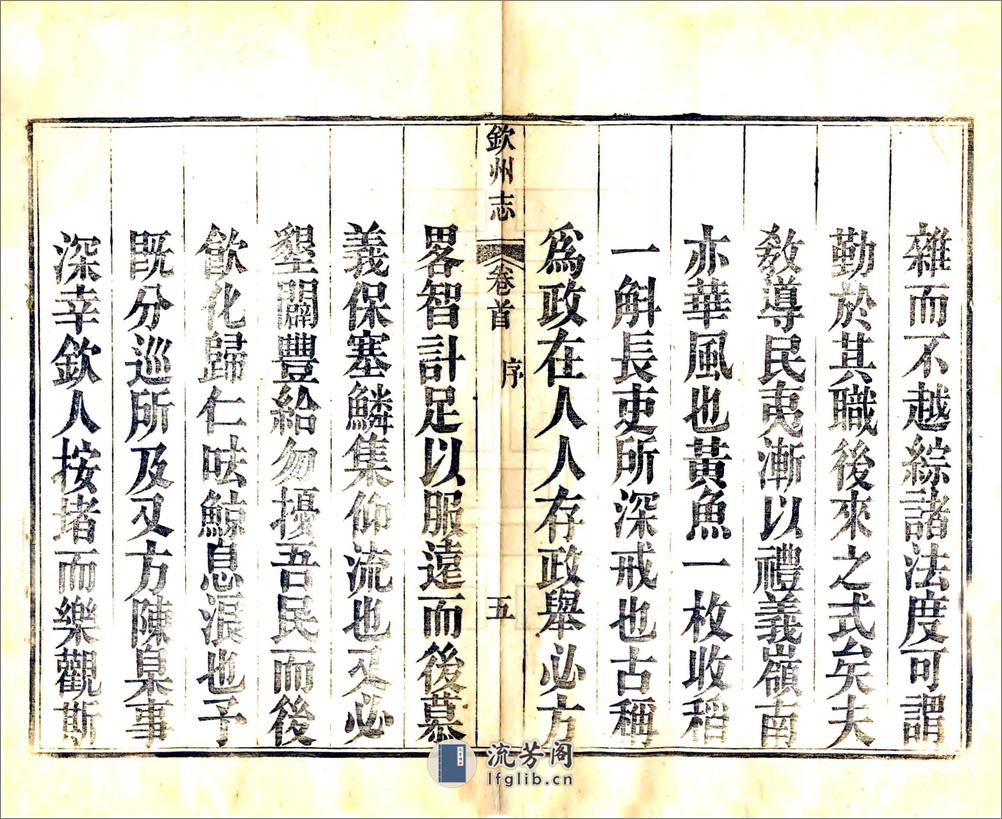 雜而不越綜諸法度可謂
勤於其職後來之式矣夫
敎導民夷漸以禮義嶺南
亦華風也黃魚一枚收稻
一斛長吏所深戒也古稱
爲政在人人存政舉必方
欽州志 卷首 序 五
畧智計足以服遠而後慕
義保塞鱗集仰流也又必
墾闢豐給勿擾吾民而後
飮化歸仁呿鯨息浪也予
旣分巡所及又方陳臬事
深幸欽人按堵而樂觀斯
流芳阁
lfglib.cn